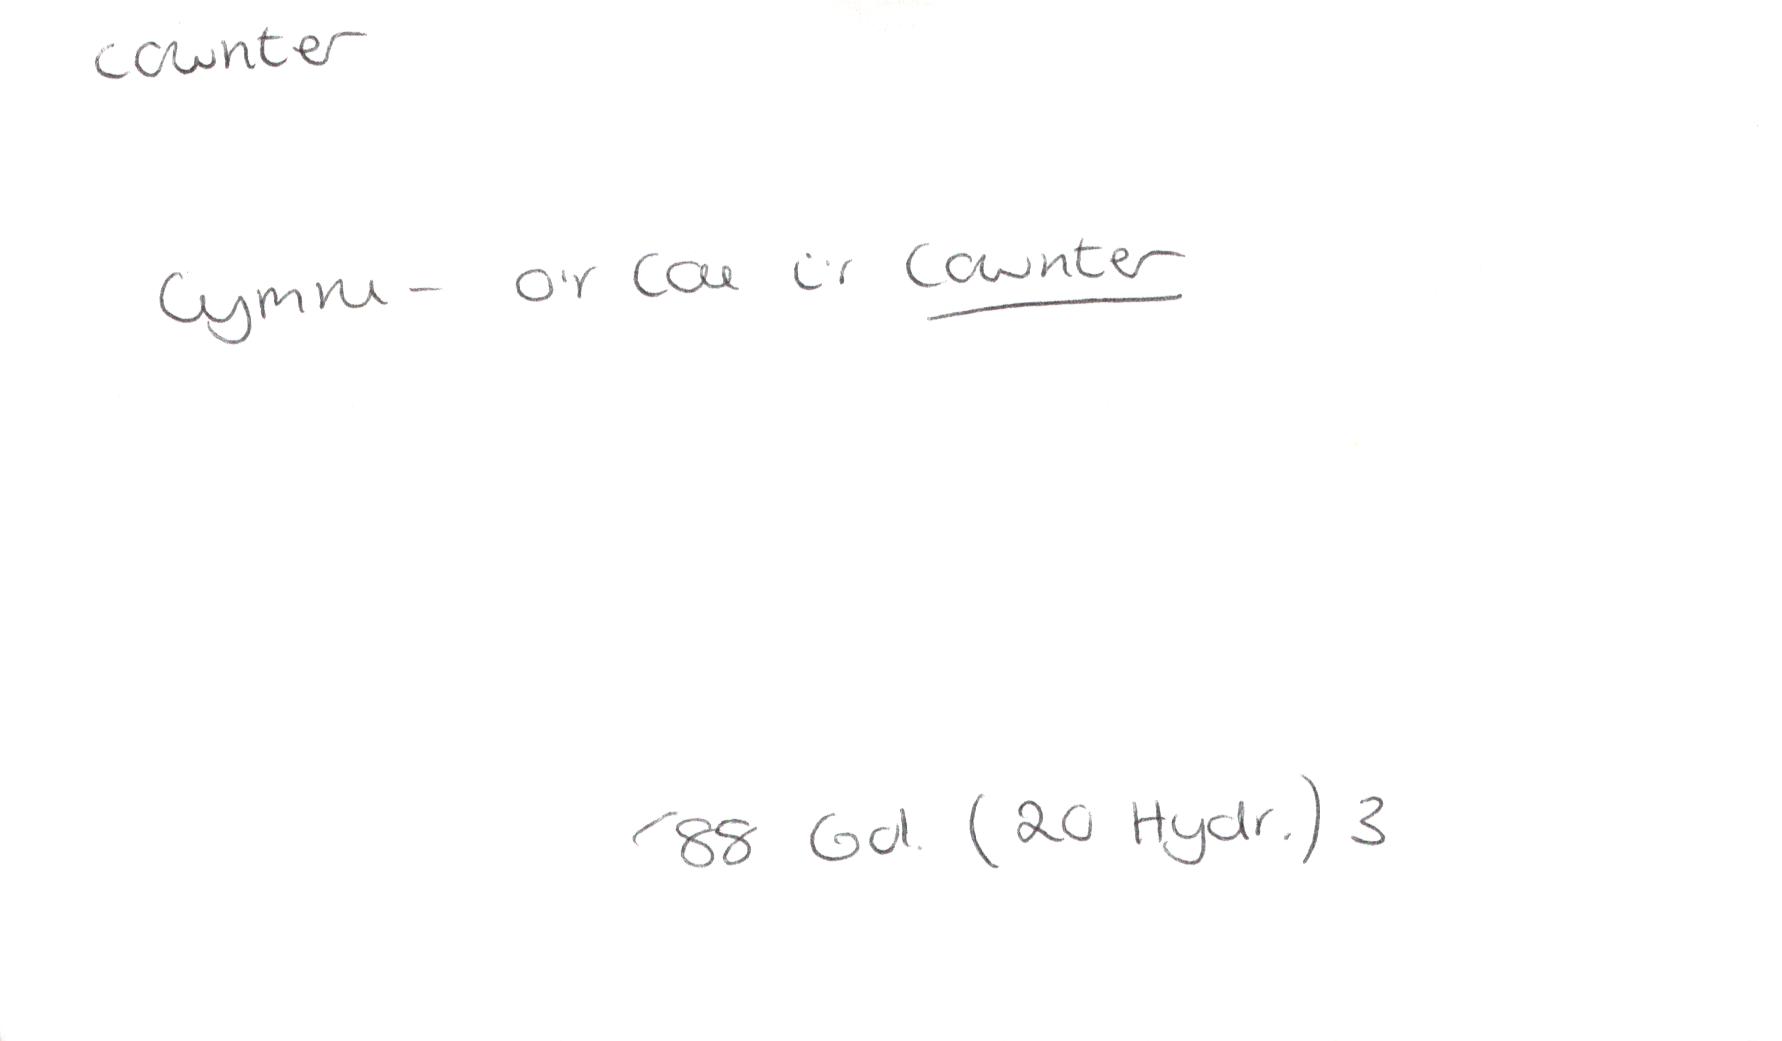 cownter
Cymru - o'r cae i'r cownter
'88 Gol. (20 Hydr.) 3